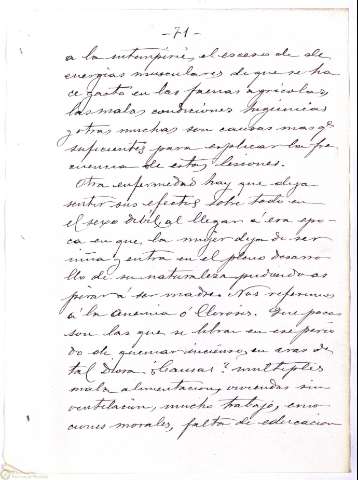 -71-
a la intemperie, el exceso de de
energias musculares de que se ha
ce gasto en las faenas agricolas,
las malas condiciones higienicas
y otras muchas son causas mas qe
suficientes para explicar la fre
cuencia de estas lesiones.
Otra enfermedad hay que deja
sentir sus efectos sobre todo en
el sexo debil, al llegar á esa epo-
ca en que la mujer deja de ser
niña y entra en el pleno desarro
llo de su naturaleza pudiendo as
pirar á ser madre. Nos referimos
á la anemia ó Clorosis. Que pocas
son las que se libran en ese perio
do de quemar incienso, en aras de
tal Diosa ¿Causas? multiples
mala alimentacion, viviendas sin
ventilacion, mucho trabajo, emo
ciones morales, falta de educacion